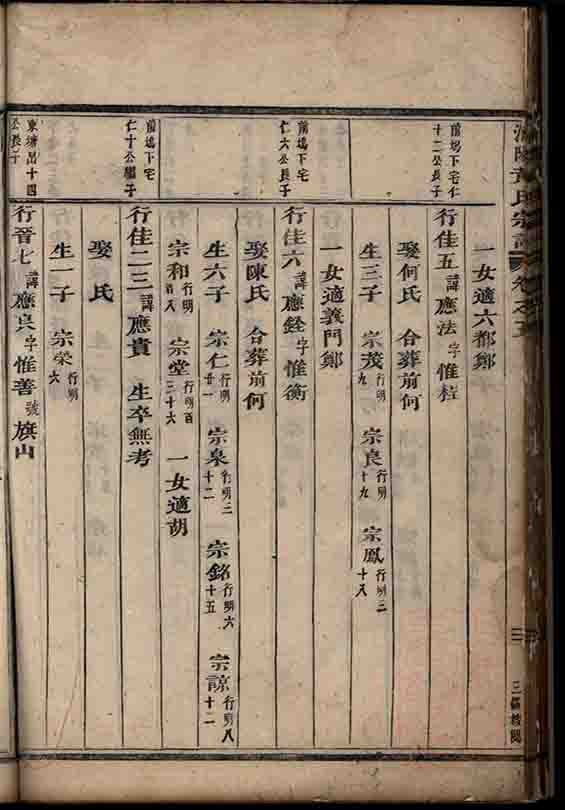 黃氏宗譜 卷之五
三鳳
一女適六都鄭
前塢下宅仁
十二公長子
行佳五 諱應法 字惟
娶何氏 合葬前何
生三子 宗茂 行明九 宗良 行明十九 宗鳳 行明三十八
一女適義門鄭
前塢下宅
仁六公長子
行佳六 諱應銓 字惟衡
娶陳氏 合葬前何
生六子 宗仁 行明廿一 宗泉 行明三十二 宗銘 行明六十五 宗諒 行明八十二
宗和 行明百八 宗堂 行明百三十六 一女適胡
前塢下宅
仁十公繼子
行佳二三 諱應貴 生卒無考
娶 氏
生一子 宗榮 行明六
東塘昌十四
公長子
行晉七 諱應良 字惟善 號旗山